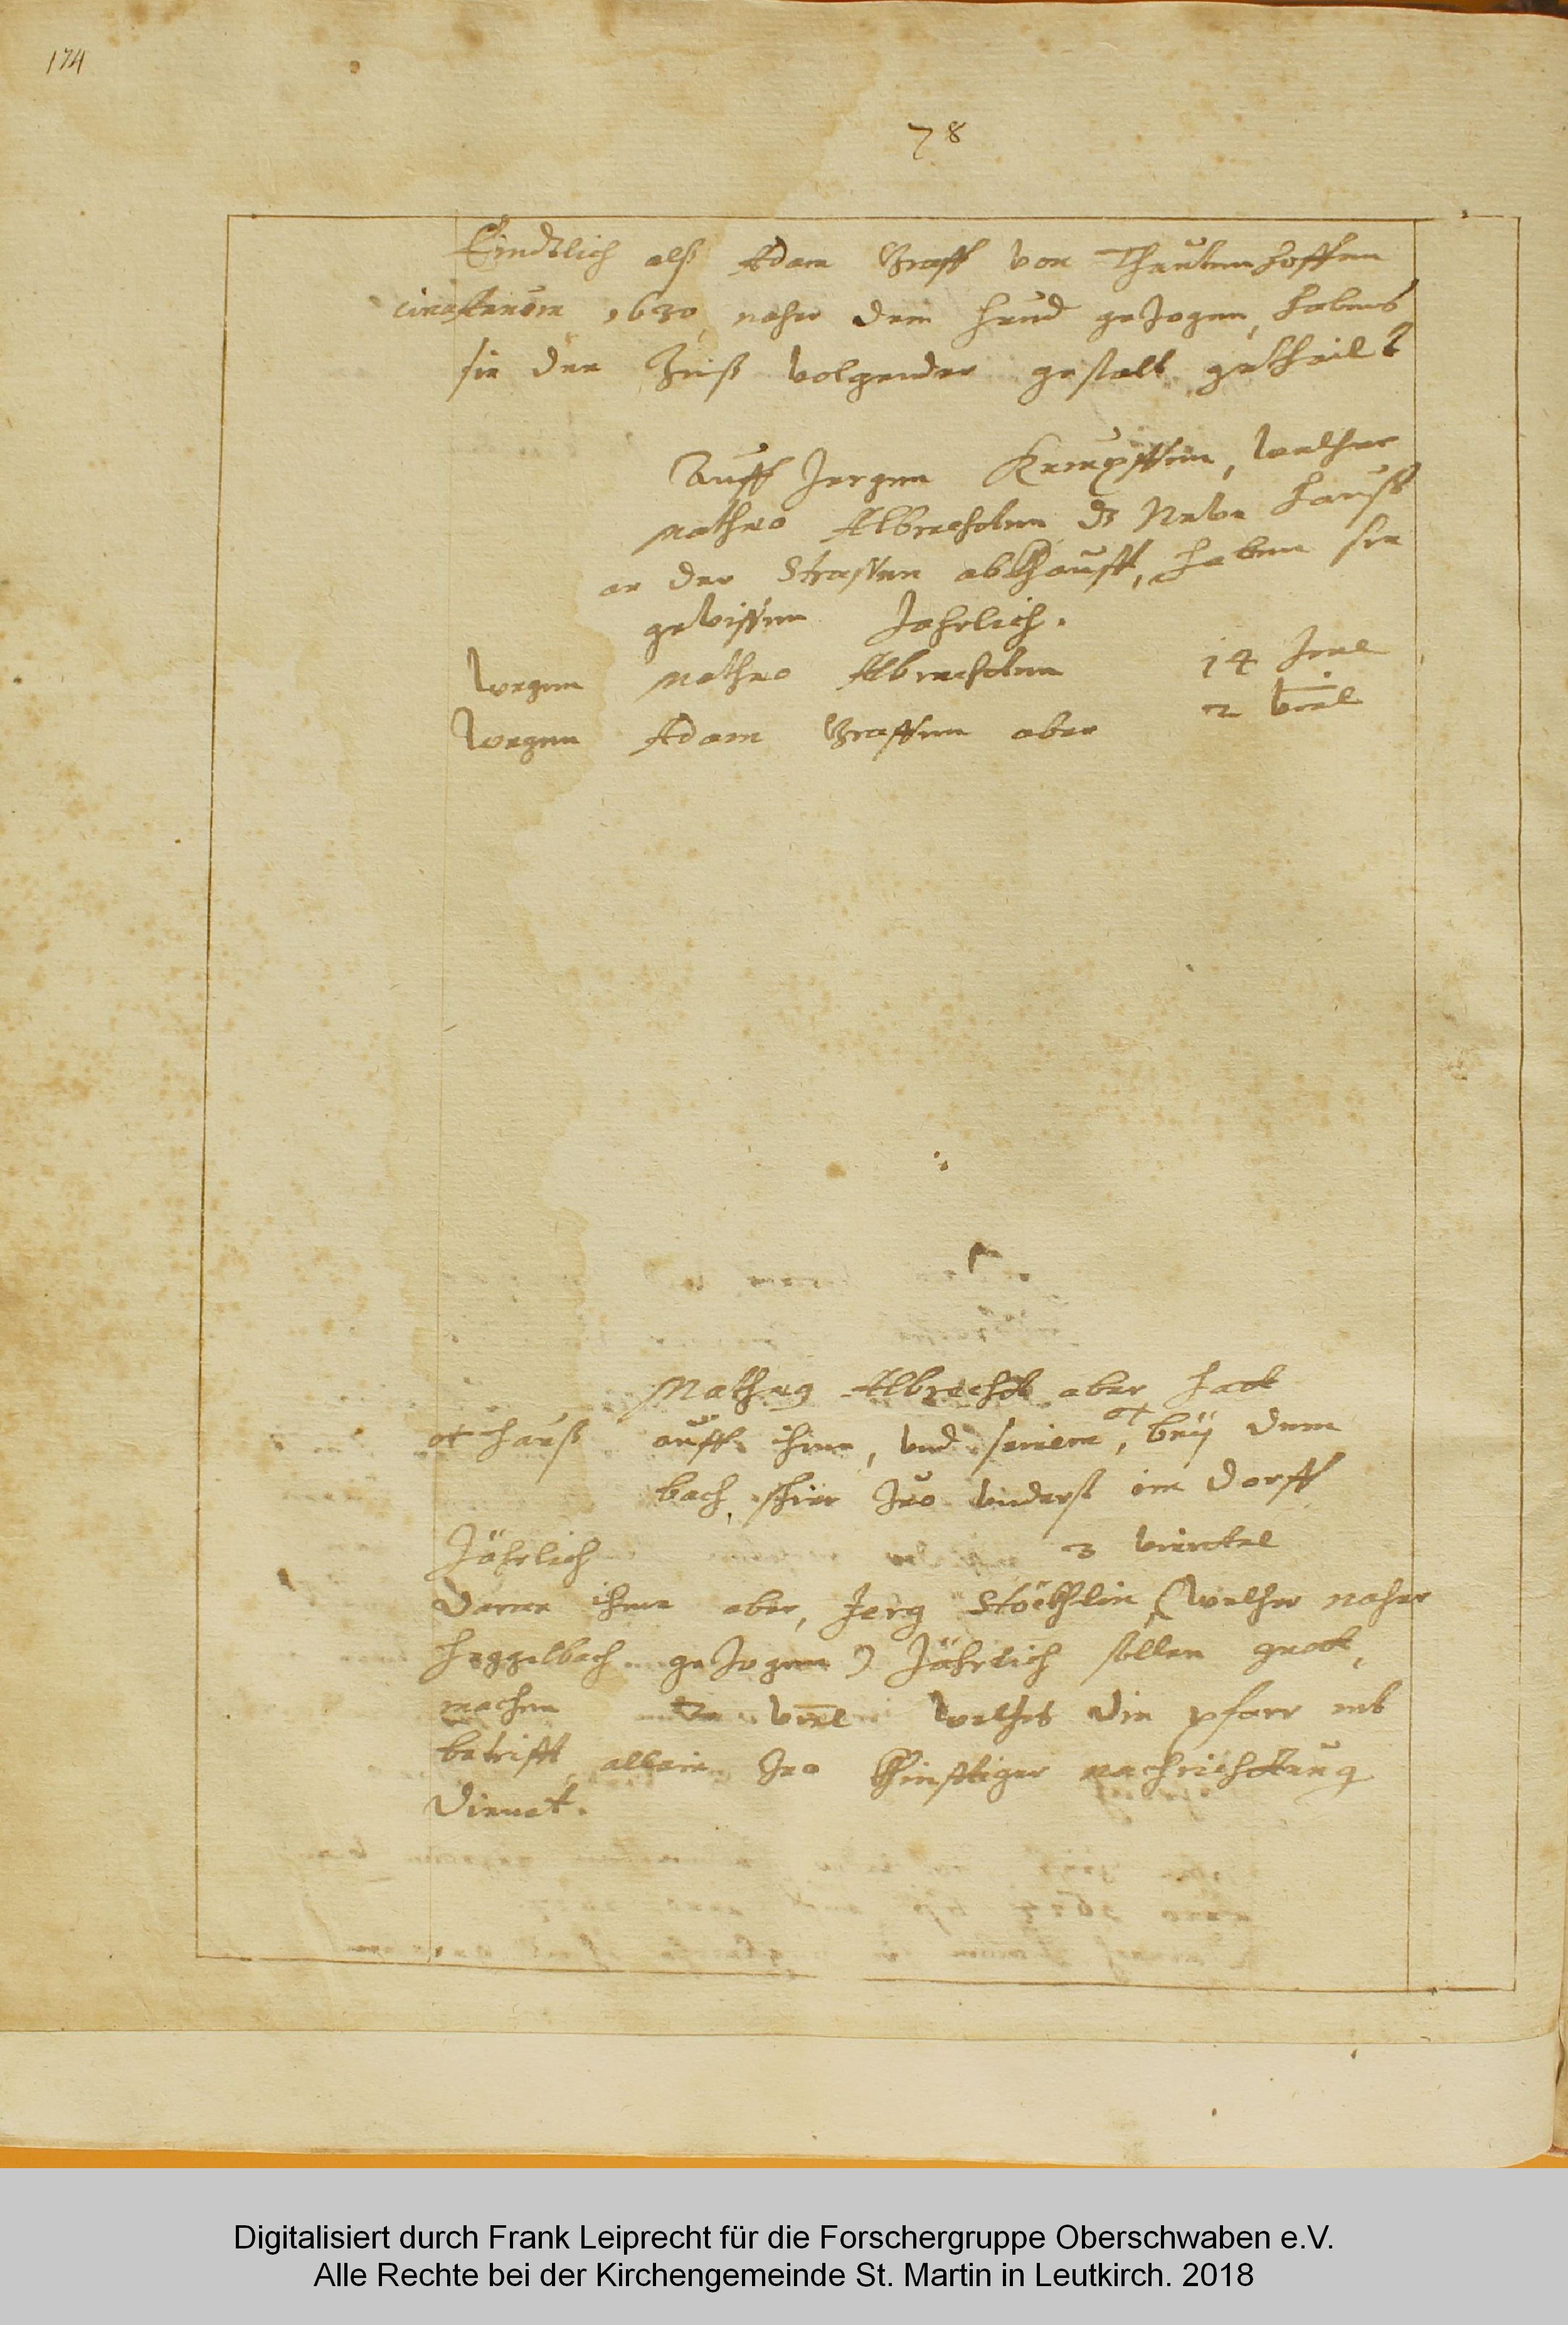 174
78
Endtlich alß Adam Graff von Theutenhoffen
1630 naher dem gezogen, habens
sie den Zinß volgender gestalt getheilt
Auff Jergen Krupffen, welcher
Matheo Albrechten dz Newe hauß
an der Strassen abkhaufft, haben sie
gewissen Jahrlich.
wegen Matheo Albrechten 14
wegen Adam Graffen aber 2 viel
Matheus Albrecht aber hatt
hauß auff ihme, und seinem, beÿ dem
bach, schier zuo underst im Dorff
Jährlich 3 viertel
Daran ihme aber, Jerg Stöckhlin (welcher naher
Heggelbach gezogen) Jährlich sollen guott
machen 2 viel welches die pfarr nit
betrifft, allein zuo khünfftiger nachrichtung
dienet.
Digitalisiert durch Frank Leiprecht für die Forschergruppe Oberschwaben e.V.
Alle Rechte bei der Kirchengemeinde St. Martin in Leutkirch. 2018